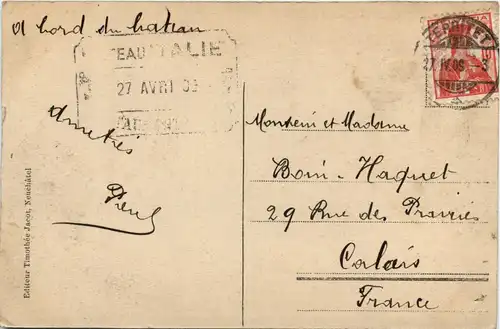 A bord du bateau
BATEAU ITALIE
27 AVRI 09
TERRITET
27 IV 09
Amitiés
Paul
Monsieur et Madame
Boin-Haquet
29 Rue des Prairies
Calais
France
Editeur Timothée Jacot, Neuchâtel